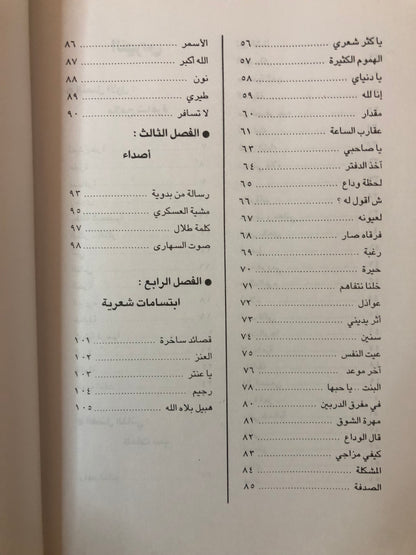 يا كثر شعري ٥٦
الهموم الكثيرة ٥٧
يا دنياي ٥٨
إنا لله ٥٩
مقدار ٦٠
عقارب الساعة ٦١
يا صاحبي ٦٣
آخذ الدفتر ٦٤
لحظة وداع ٦٥
ش اقول له ؟ ٦٦
لعيونه ٦٧
فرقاه صار ٦٨
رغبة ٦٩
حيرة ٧٠
خلنا نتفاهم ٧١
عواذل ٧٢
أثر يديني ٧٣
سنين ٧٤
عيت النفس ٧٥
آخر موعد ٧٦
البنت .. يا حبها ٧٨
في مفرق الدربين ٨٠
مهرة الشوق ٨١
قال الوداع ٨٢
كيفي مزاجي ٨٣
المشكلة ٨٤
الصدفة ٨٥
الأسمر ٨٦
الله أكبر ٨٧
نون ٨٨
طيري ٨٩
لا تسافر ٩٠
● الفصل الثالث :
أصداء
رسالة من بدوية ٩٣
مشبة العسكري ٩٥
كلمة طلال ٩٧
صوت السهارى ٩٨
● الفصل الرابع :
ابتسامات شعرية
قصائد ساخرة ١٠١
العنز ١٠٢
يا عنتر ١٠٣
رجيم ١٠٤
هبيل بلاه الله ١٠٥